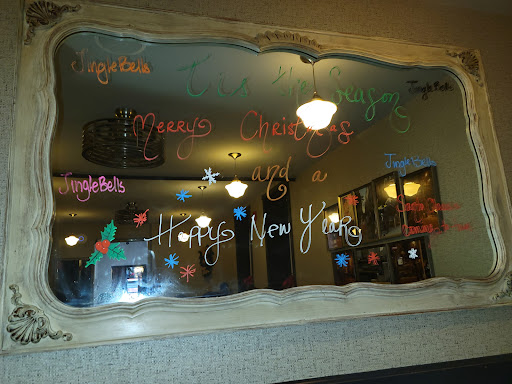 JingleBells
T'is the Season
JingleBells
Merry Christmas
and a
JingleBells
JingleBells
Happy New Year
Santa Claus